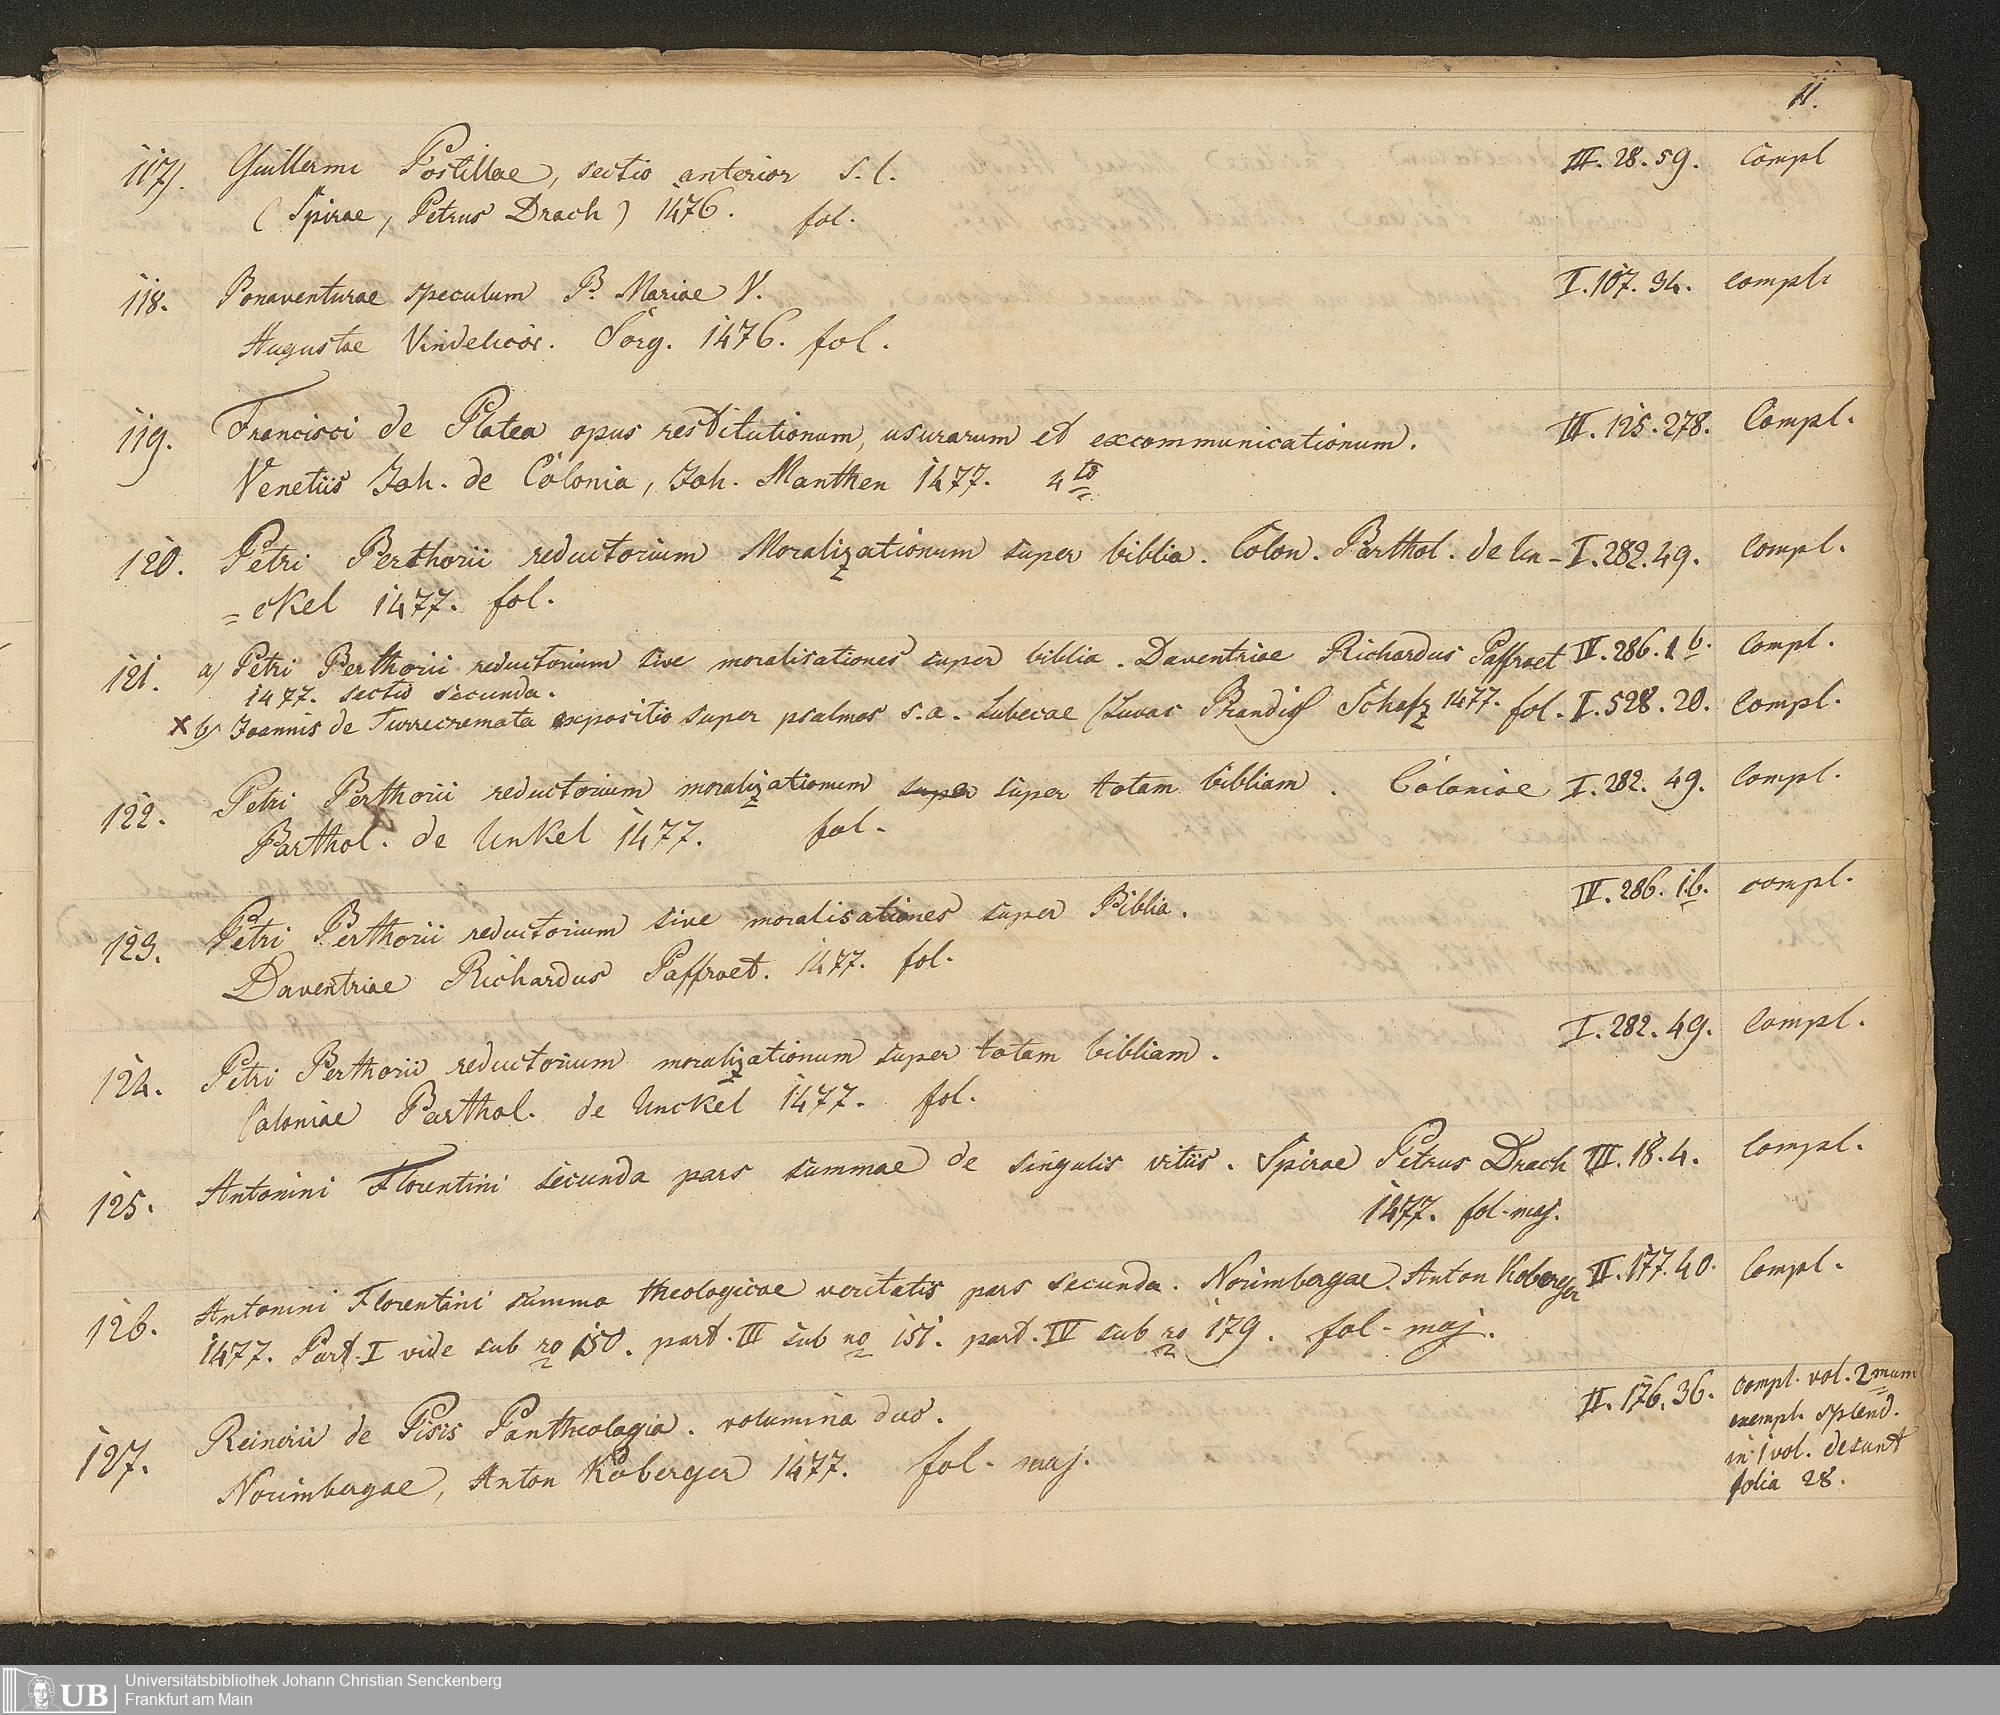 11.
117). Guillermi Postillae, sectio anterior s. l. III. 28. 59. Compl
(Spirae, Petrus Drach) 1476. fol.
118. Bonaventurae speculum B. Mariae V. I. 107. 34. compl.
Augustae Vindelicor. Sorg. 1476. fol.
119. Francisci de Platea opus restitutionum, usurarum et excommunicationum. III. 125. 278. Compl.
Venetiis Joh. de Colonia, Joh. Manthen 1477. 4to
120. Petri Berthorii reductorium Moralizationum super biblia. Colon. Barthol. de Un- I. 282. 49. Compl.
=ckel 1477. fol.
121. a) Petri Berthorii reductorium sive moralisationes super biblia. Daventriae Richardus Paffraet IV. 286. 1 b. Compl.
1477. sectio secunda.
x b) Joannis de Turrecremata expositio super psalmos s. a. Lubecae (Lucas Brandis Schasz 1477. fol. I. 528. 20. Compl.
122. Petri Berthorii reductorium moralizationum super super totam bibliam. Coloniae I. 282. 49. Compl.
Barthol. de Unkel 1477. fol.
123. Petri Berthorii reductorium sive moralisationes super Biblia. IV. 286. 1b. compl.
Daventriae Richardus Paffraet. 1477. fol.
124. Petri Berthorii reductorium moralizationum super totam bibliam. I. 282. 49. Compl.
Coloniae Barthol. de Unckel 1477. fol.
125. Antonini Florentini secunda pars summae de singulis vitiis. Spirae Petrus Drach III. 18. 4. Compl.
1477. fol. maj.
126. Antonini Florentini summa theologicae veritatis pars secunda. Norimbergae. Anton Koberger II. 177. 40. Compl.
1477. Part. I vide sub no 150. part. III sub no 151. part. IV sub no 179. fol- maj.
127. Reinerii de Pisis Pantheologia. volumina duo. II. 176. 36. compl. vol. 2mum
exempl. splend.
in 1 vol. desunt
folia 28.
Norimbergae, Anton Koberger 1477. fol- maj.
UB
Universitätsbibliothek Johann Christian Senckenberg
Frankfurt am Main